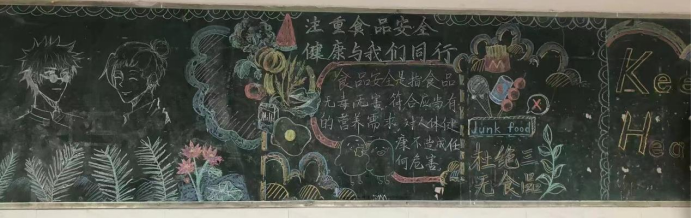 注重食品安全
健康与我们同行
食品安全是指食品
无毒无害符合应当有
的营养需求对人体健
康不造成任
何危害
M
X
Junk food
杜绝三
无食品
Kee
Hea